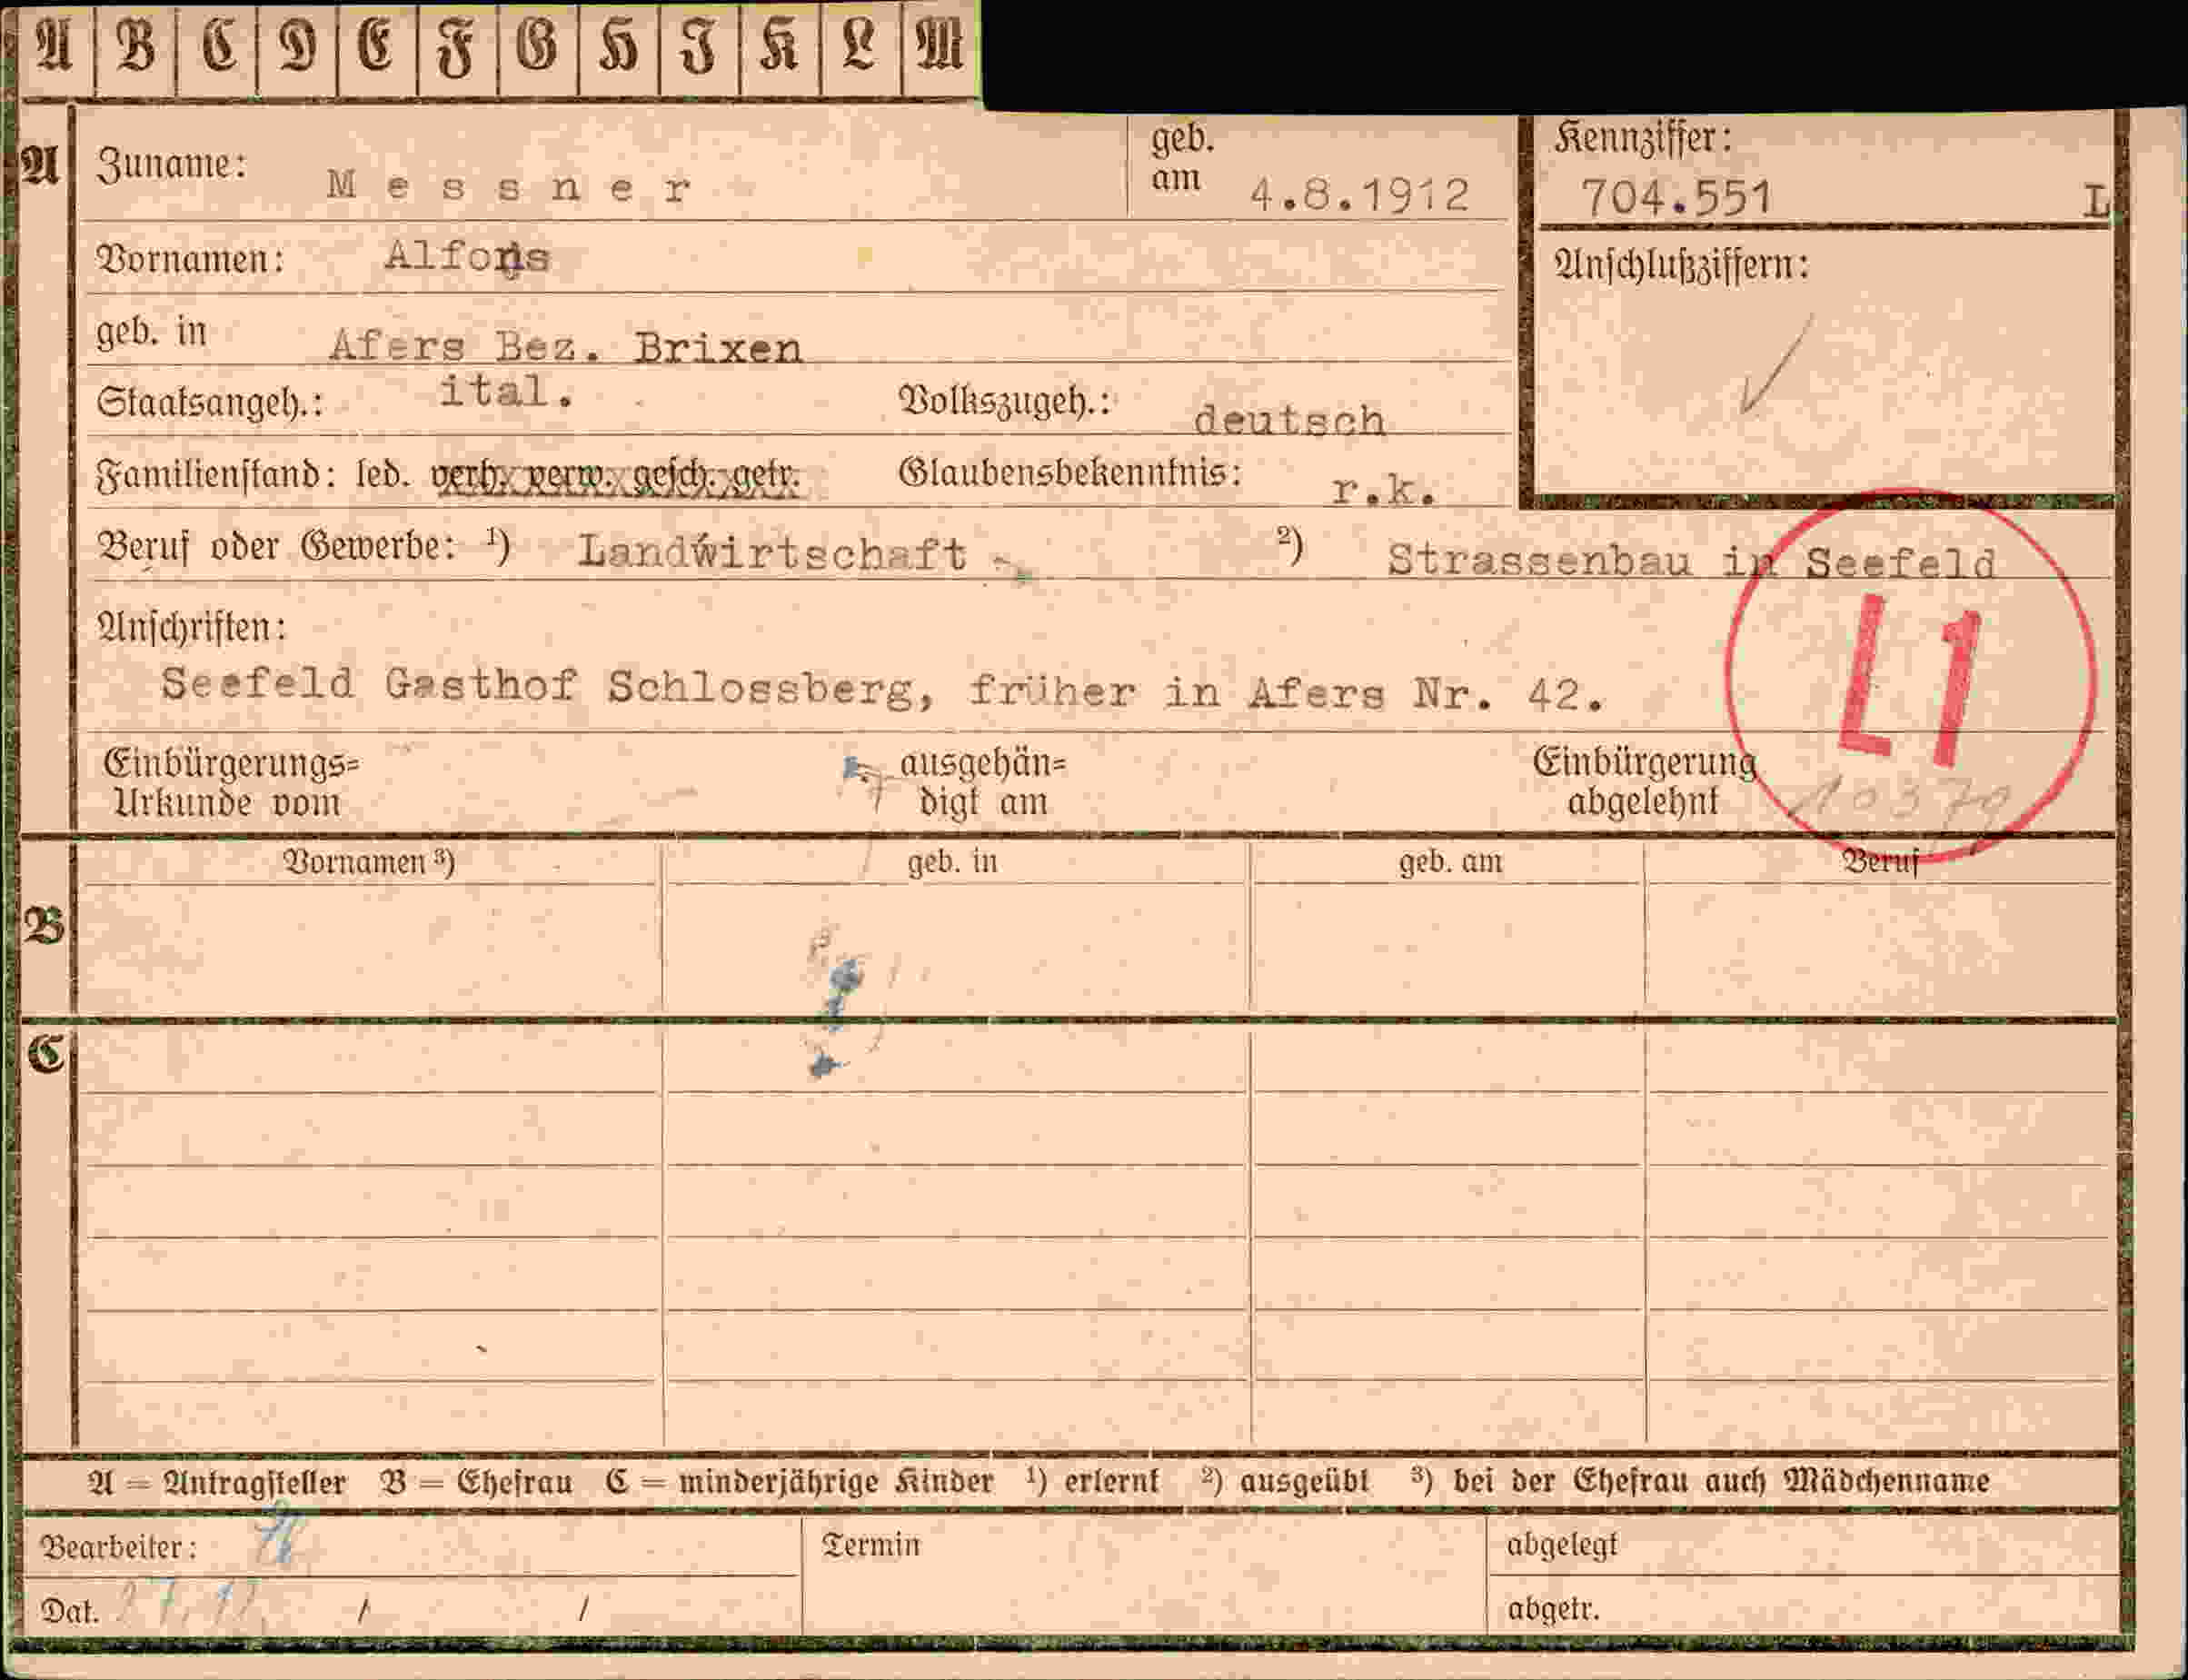 A B C D E F G H J K L M
A Zuname: Messner geb. am 4.8.1912 Kennziffer: 704.551 L
Vornamen: Alfons Anschlußziffern:
geb. in Afers Bez. Brixen
Staatsangeh.: ital. Volkszugeh.: deutsch
Familienstand: led. verh. verw. gesch. getr. Glaubensbekenntnis: r.k.
Beruf oder Gewerbe: ¹) Landwirtschaft - ²) Strassenbau in Seefeld
L1
Anschriften:
Seefeld Gasthof Schlossberg, früher in Afers Nr. 42.
Einbürgerungs= ausgehän= Einbürgerung
Urkunde vom digt am abgelehnt 10379
Vornamen ³) geb. in geb. am Beruf
B
C
A = Antragsteller B = Ehefrau C = minderjährige Kinder ¹) erlernt ²) ausgeübt ³) bei der Ehefrau auch Mädchenname
Bearbeiter: Termin abgelegt
Dat. 27.12. / / abgetr.